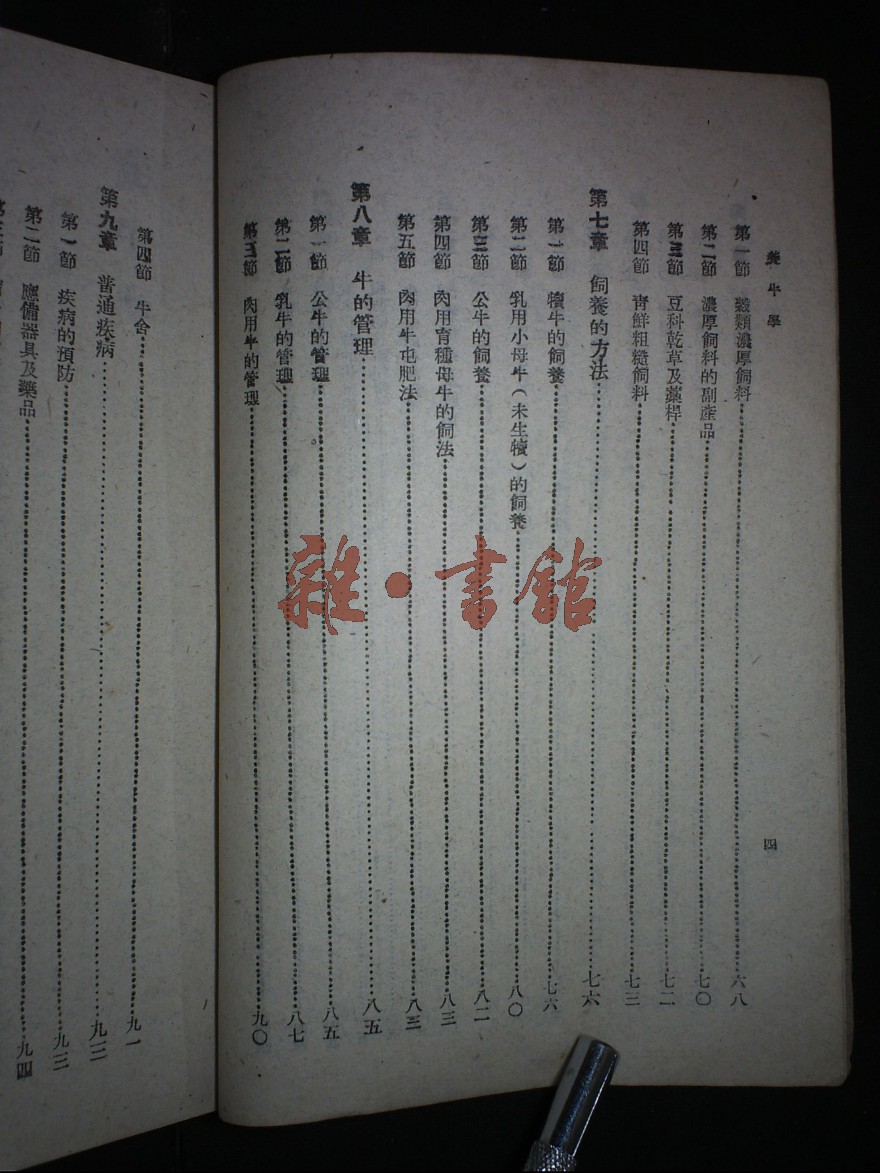 養牛學
四
第一節 穀類濃厚飼料 六八
第二節 濃厚飼料的副產品 七〇
第三節 豆科乾草及藁稈 七二
第四節 青鮮粗糙飼料 七三
第七章 飼養的方法 七六
第一節 犢牛的飼養 七六
第二節 乳用小母牛(未生犢)的飼養 八〇
第三節 公牛的飼養 八二
第四節 肉用育種母牛的飼法 八三
第五節 肉用牛屯肥法 八三
第八章 牛的管理 八五
第一節 公牛的管理 八五
第二節 乳牛的管理 八七
第三節 肉用牛的管理 九〇
第四節 牛舍 九一
第九章 普通疾病 九三
第一節 疾病的預防 九三
第二節 應備器具及藥品 九四
雜·書館